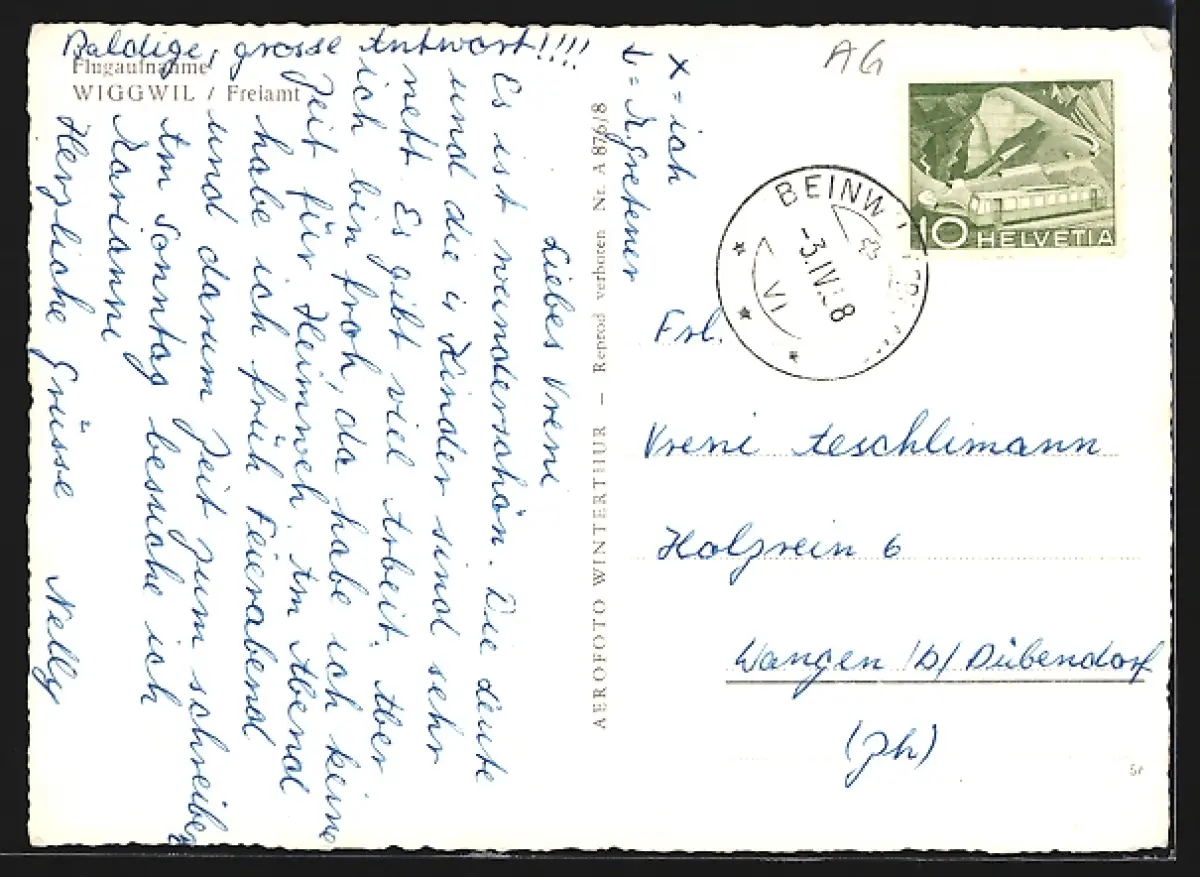 Baldige, grosse Antwort!!!!
Flugaufnahme
WIGGWIL / Freiamt
Liebes Vreni
Es ist wunderschön. Die deute
und die is Kinder sind sehr
nett. Es gibt viel Arbeit. Aber
ich bin froh, da habe ich keine
Zeit für Heimweh. Am Abend
habe ich früh Feierabend
und darum Zeit zum schreiben
Am Sonntag besuche ich
Marianni
Herzliche Grüsse Nelly
AEROFOTO WINTERTHUR – Reprod verboten Nr. A 876/8
x = ich
t =
AG
10 HELVETIA
BEINW
-3.IV. 8
VI
Frl.
Vreni Aeschlimann
Holzrein 6
Wangen /b/ Dübendorf
(Zh)